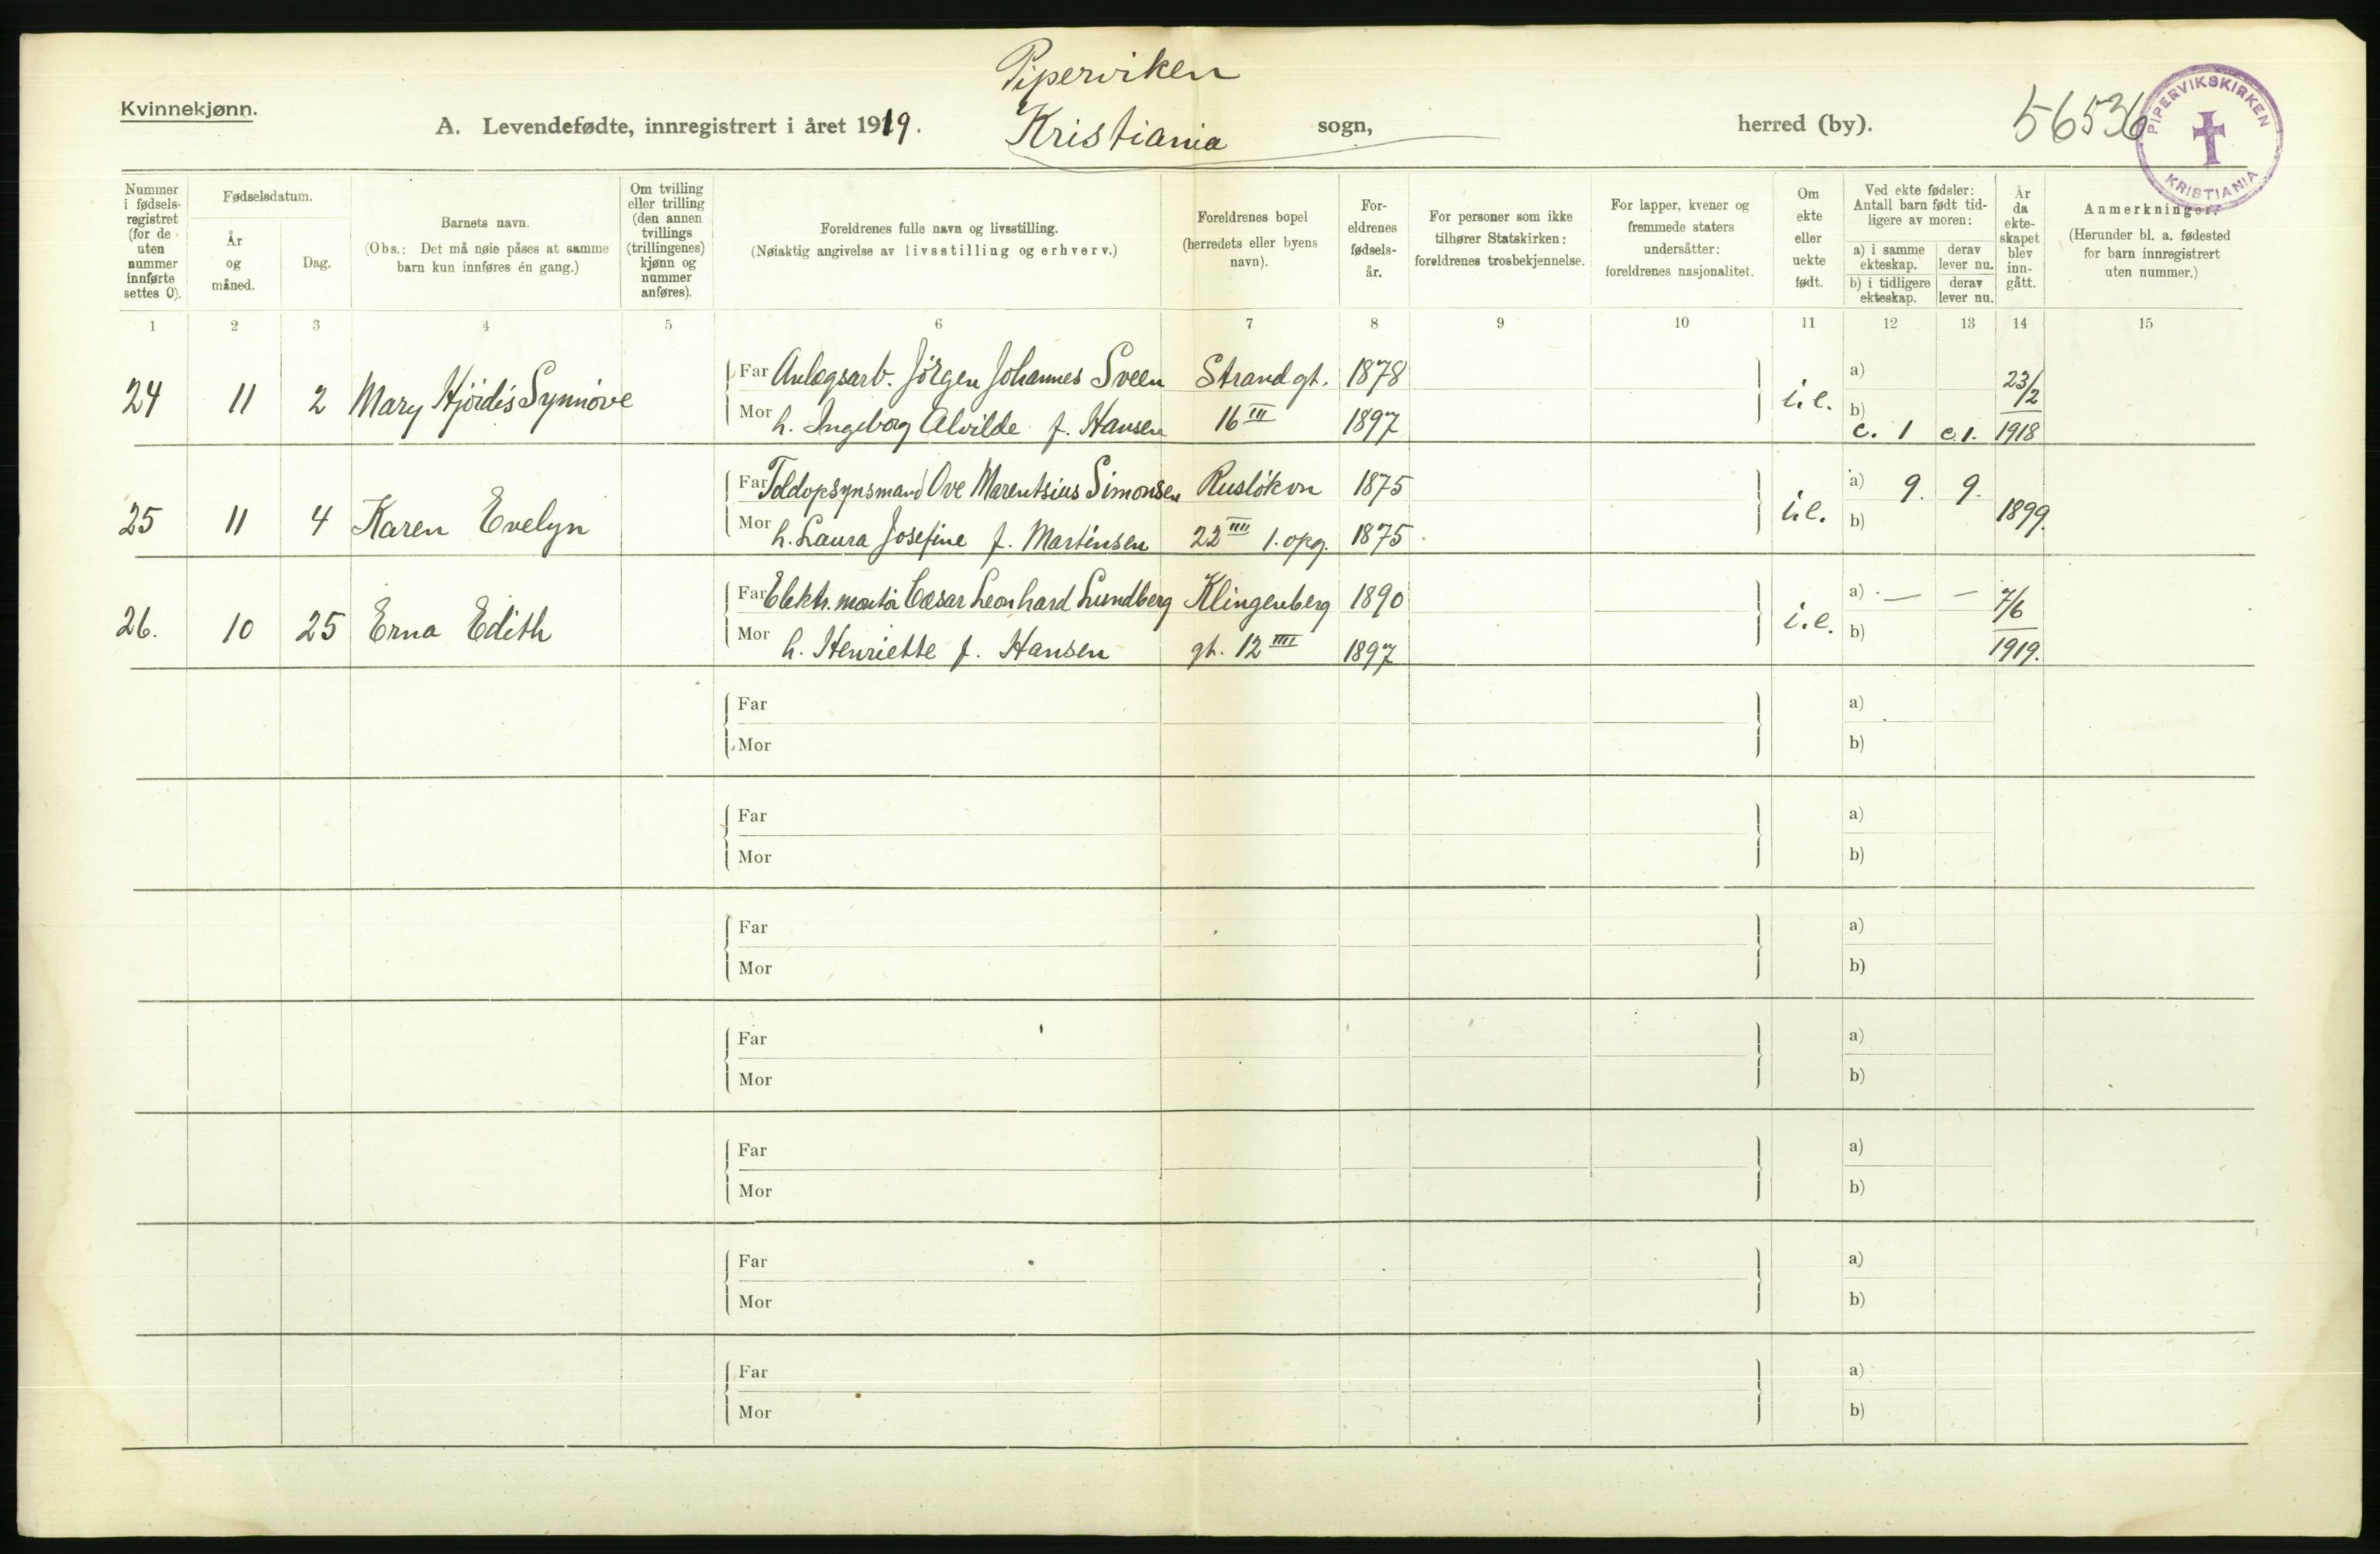 Piperviken
Kvinnekjønn.
A. Levendefødte, innregistrert i året 1919. Kristiania sogn, herred (by). 56536
PIPERVIKSKIRKEN
KRISTIANIA
Nummer i fødsels-registret (for de uten nummer innførte settes 0).
Fødselsdatum.
År og måned.
Dag.
Barnets navn.
(Obs.: Det må nøie påses at samme barn kun innføres én gang.)
Om tvilling eller trilling (den annen tvillings (trillingenes) kjønn og nummer anføres).
Foreldrenes fulle navn og livsstilling.
(Nøiaktig angivelse av livsstilling og erhverv.)
Foreldrenes bopel (herredets eller byens navn).
For-eldrenes fødsels-år.
For personer som ikke tilhører Statskirken: foreldrenes trosbekjennelse.
For lapper, kvener og fremmede staters undersåtter: foreldrenes nasjonalitet.
Om ekte eller uekte født.
Ved ekte fødsler: Antall barn født tid-ligere av moren:
a) i samme ekteskap.
derav lever nu.
b) i tidligere ekteskap.
derav lever nu.
År da ekte-skapet blev inn-gått.
Anmerkninger.
(Herunder bl. a. fødested for barn innregistrert uten nummer.)
1 2 3 4 5 6 7 8 9 10 11 12 13 14 15
Far Anlægsarb. Jörgen Johannes Sveen Strandgt. 1878 a) 23/2
24 11 2 Mary Hjördis Synnöve i.e.
Mor h. Ingeborg Alvilde f. Hansen 16 III 1897 b)
c. 1 c. 1. 1918
Far Toldopsynsmand Ove Marentsius Simonsen Ruslökvn 1875 a) 9. 9.
25 11 4 Karen Evelyn i.e. 1899.
Mor h. Laura Josefine f. Martinsen 22 IIII 1. opg. 1875 b)
Far Elektr. montör Cæsar Leonhard Lundberg Klingenberg 1890 a) — — 7/6
26. 10 25 Erna Edith i.e.
Mor h. Henriette f. Hansen gt. 12 IIII 1897 b) 1919.
Far a)
Mor b)
Far a)
Mor b)
Far a)
Mor b)
Far a)
Mor b)
Far a)
Mor b)
Far a)
Mor b)
Far a)
Mor b)